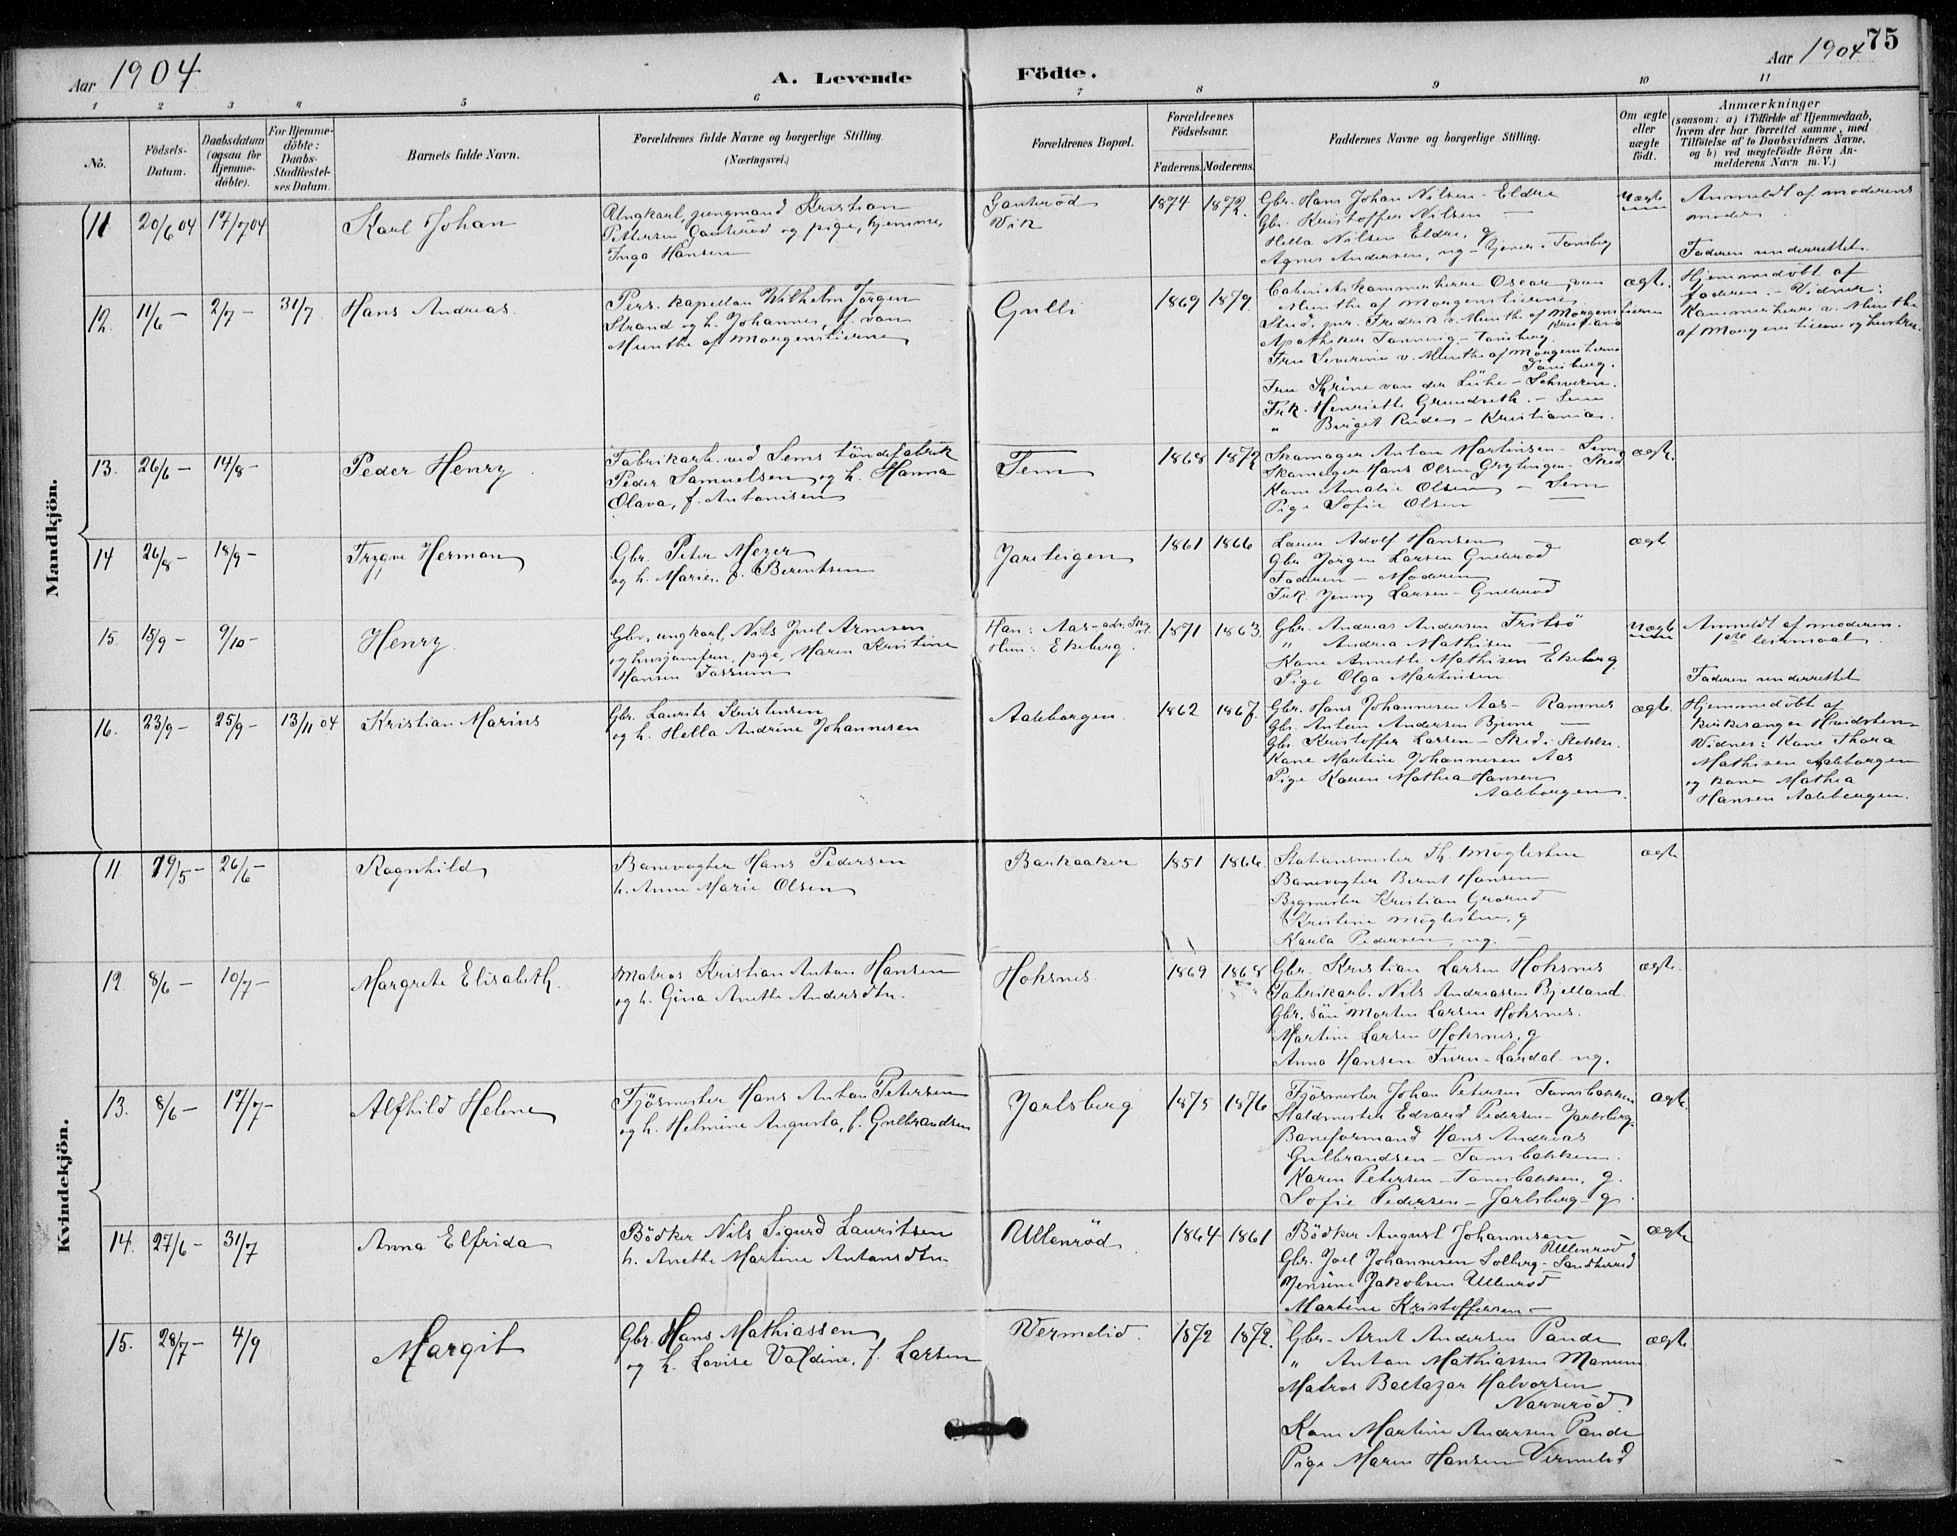 75
Aar 1904
A. Levende
Födte.
Aar 1904
1 2 3 4 5 6 7 8 9 10 11
No.
Födsels-Datum.
Daabsdatum (ogsaa for Hjemme-döbte).
For Hjemme-döbte: Daabs-Stadfæstel-ses Datum.
Barnets fulde Navn.
Forældrenes fulde Navne og borgerlige Stilling.
(Næringsvei.)
Forældrenes Bopæl.
Forældrenes Födselsaar.
Faderens. Moderens.
Faddernes Navne og borgerlige Stilling.
Om ægte eller uægte födt.
Anmærkninger
(saasom: a) i Tilfælde af Hjemmedaab, hvem der har forrettet samme, med Tilföielse af to Daabsvidners Navne, og b) ved uægtefödte Börn Anmelderens Navn m. V.)
Mandkjön.
11 20/6 04 17/7 04 Karl Johan
Ungkarl, jungmand Kristian
Pettersen Gauterød og pige, hjemme,
Inga Hansen
Gauterød
Vik
1874 1872.
Gbr. Hans Johan Nilsen - Eldre
Gbr. Kristoffer Nilsen —
Hella Nilsen Eldre, g
Agnes Andersen, ug - Tønsberg
Uægte
Anmeldt af moderens
moder
Faderen underrettet.
12. 11/6 — 2/7 — 31/7 Hans Andreas.
Pers. kapellan Wilhelm Jørgen
Strand og h. Johanne, f. von
Munthe af Morgenstierne
Gulli
1869 1879.
Cabinetskammerherre Oscar von
Munthe af Morgenstierne
Stud. Fredrik v. Munthe af Morgenstierne
Kristiania
Apotheker - Tønsberg.
Fru Severine v. Munthe af Morgenstierne
Tønsberg.
Fru von der Lühe - Schwerin.
Frk. Henriette Grundseth. - Sem
" Birget - Kristiania.
ægte.
Hjemmedøbt af
faderen. - Vidner:
Kammerherre v. Munthe
af Morgenstierne og hustru.
13. 26/6 — 14/8 — Peder Henry
Fabrikarb. ved Sems tøndefabrik
Peder Samuelsen og h. Hanna
Olava, f. Antonisen
Sem
1868 1872
Skomager Anton Martinsen - Sem
Skomager Hans Olsen
Kone Amalie Olsen - Sem
Pige Sofie Olsen —
ægte.
14 26/8 — 18/9 — Trygve Herman
Gbr. Peter Meyer
og h. Marie, f. Berentsen
Jarteigen
1861 1866
Adolf Hansen —
Gbr Jørgen Larsen Gulerød
Faderen - Moderen
Frk. Jenny Larsen - Gulerød
ægte
15. 15/9 — 9/10 — Henry
Gbr., ungkarl, Nils Juel Arnesen
og husjomfru, pige, Maren Kristine
Hansen
Han: Aas
Hun: Ekeberg.
1871 1863.
Gbr. Andreas Andersen Fritsø
" Andrea Mathisen —
Kone Annette Mathisen Ekeberg.
Pige Olga Martinsen
Uægte
Anmeldt af moderen.
1ste leiermaal
Faderen underrettet
16. 23/9 — 25/9 — 13/11 04 Kristian Marius
Gbr. Laurits Kristensen
og h. Hella Andrine Johannesen
Aaleborgen
1862 1867.
Gbr. Hans Johannesen Aas - Ramnes
Gbr. Anton Andersen —
Gbr Kristoffer Larsen - Stokke.
Kone Martine Johannesen Aas
Pige Karen Mathea Hansen
Aaleborgen
ægte.
Hjemmedøbt af
kirkesanger Hvidsten
Vidner: Kone Thora
Mathisen Aaleborgen
og kone Mathea
Hansen Aaleborgen.
Kvindekjön.
11 19/5 — 26/6 — Ragnhild
Banevogter Hans Pedersen
h. Anne Marie Olsen
Barkaaker
1851 1866
Stationsmester Th. Møglestue
Banevogter Bernt Hansen
Bygmester Kristian Grorud
Kristine Møglestue, g
Karla Pedersen, ug. —
ægte
12 8/6 — 10/7 — Margrete Elisabeth.
Matros Kristian Anton Hansen
og h. Gina Anette Andersdtr.
Hoksnes
1869 1868
Gbr. Kristian Larsen Hoksnes
Fabrikarb. Nils Andreassen Bjelland.
Gbr. søn Morten Larsen Hoksnes.
Martine Larsen Hoksnes, g
Anna Hansen - Lardal ug.
ægte.
13. 8/6 — 17/7 — Alfhild Helene
Fjøsmester Hans Anton Petersen
og h. Helmine Augusta, f. Gulbrandsen
Jarlsberg
1875 1876
Fjøsmester Johan Petersen Tomsbakken
Staldmester Edvard Pedersen - Jarlsberg.
Baneformand Hans Andreas
Gulbrandsen - Tomsbakken.
Karen Petersen - Tomsbakken, g.
Sofie Pedersen - Jarlsberg - g.
ægte
14. 27/6 — 31/7 Anna Elfrida
Bødker Nils Sigurd Lauritsen
h. Anette Martine Antonsdtr
Ullenrød
1864 1861
Bødker August Johannesen
Ullenrød
Gbr. Joel Johannesen Solberg - Sandherred
Jensine Jakobsen Ullenrød
Martine Kristoffersen —
ægte
15. 28/7 — 4/9 Margit
Gbr. Hans Mathiassen
og h. Lovise Valdine, f. Larsen
Vermelid.
1872 1872.
Gbr. Arnt Andersen Pande
" Anton Mathiassen Manum
Matros Baltazar Halvorsen
Narverød.
Kone Martine Andersen Pande
Pige Maren Hansen Vermelid
ægte.